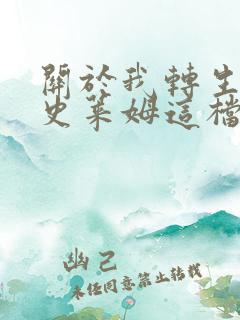 關於我轉生
史萊姆這檔
幽己
未經同意禁止轉載